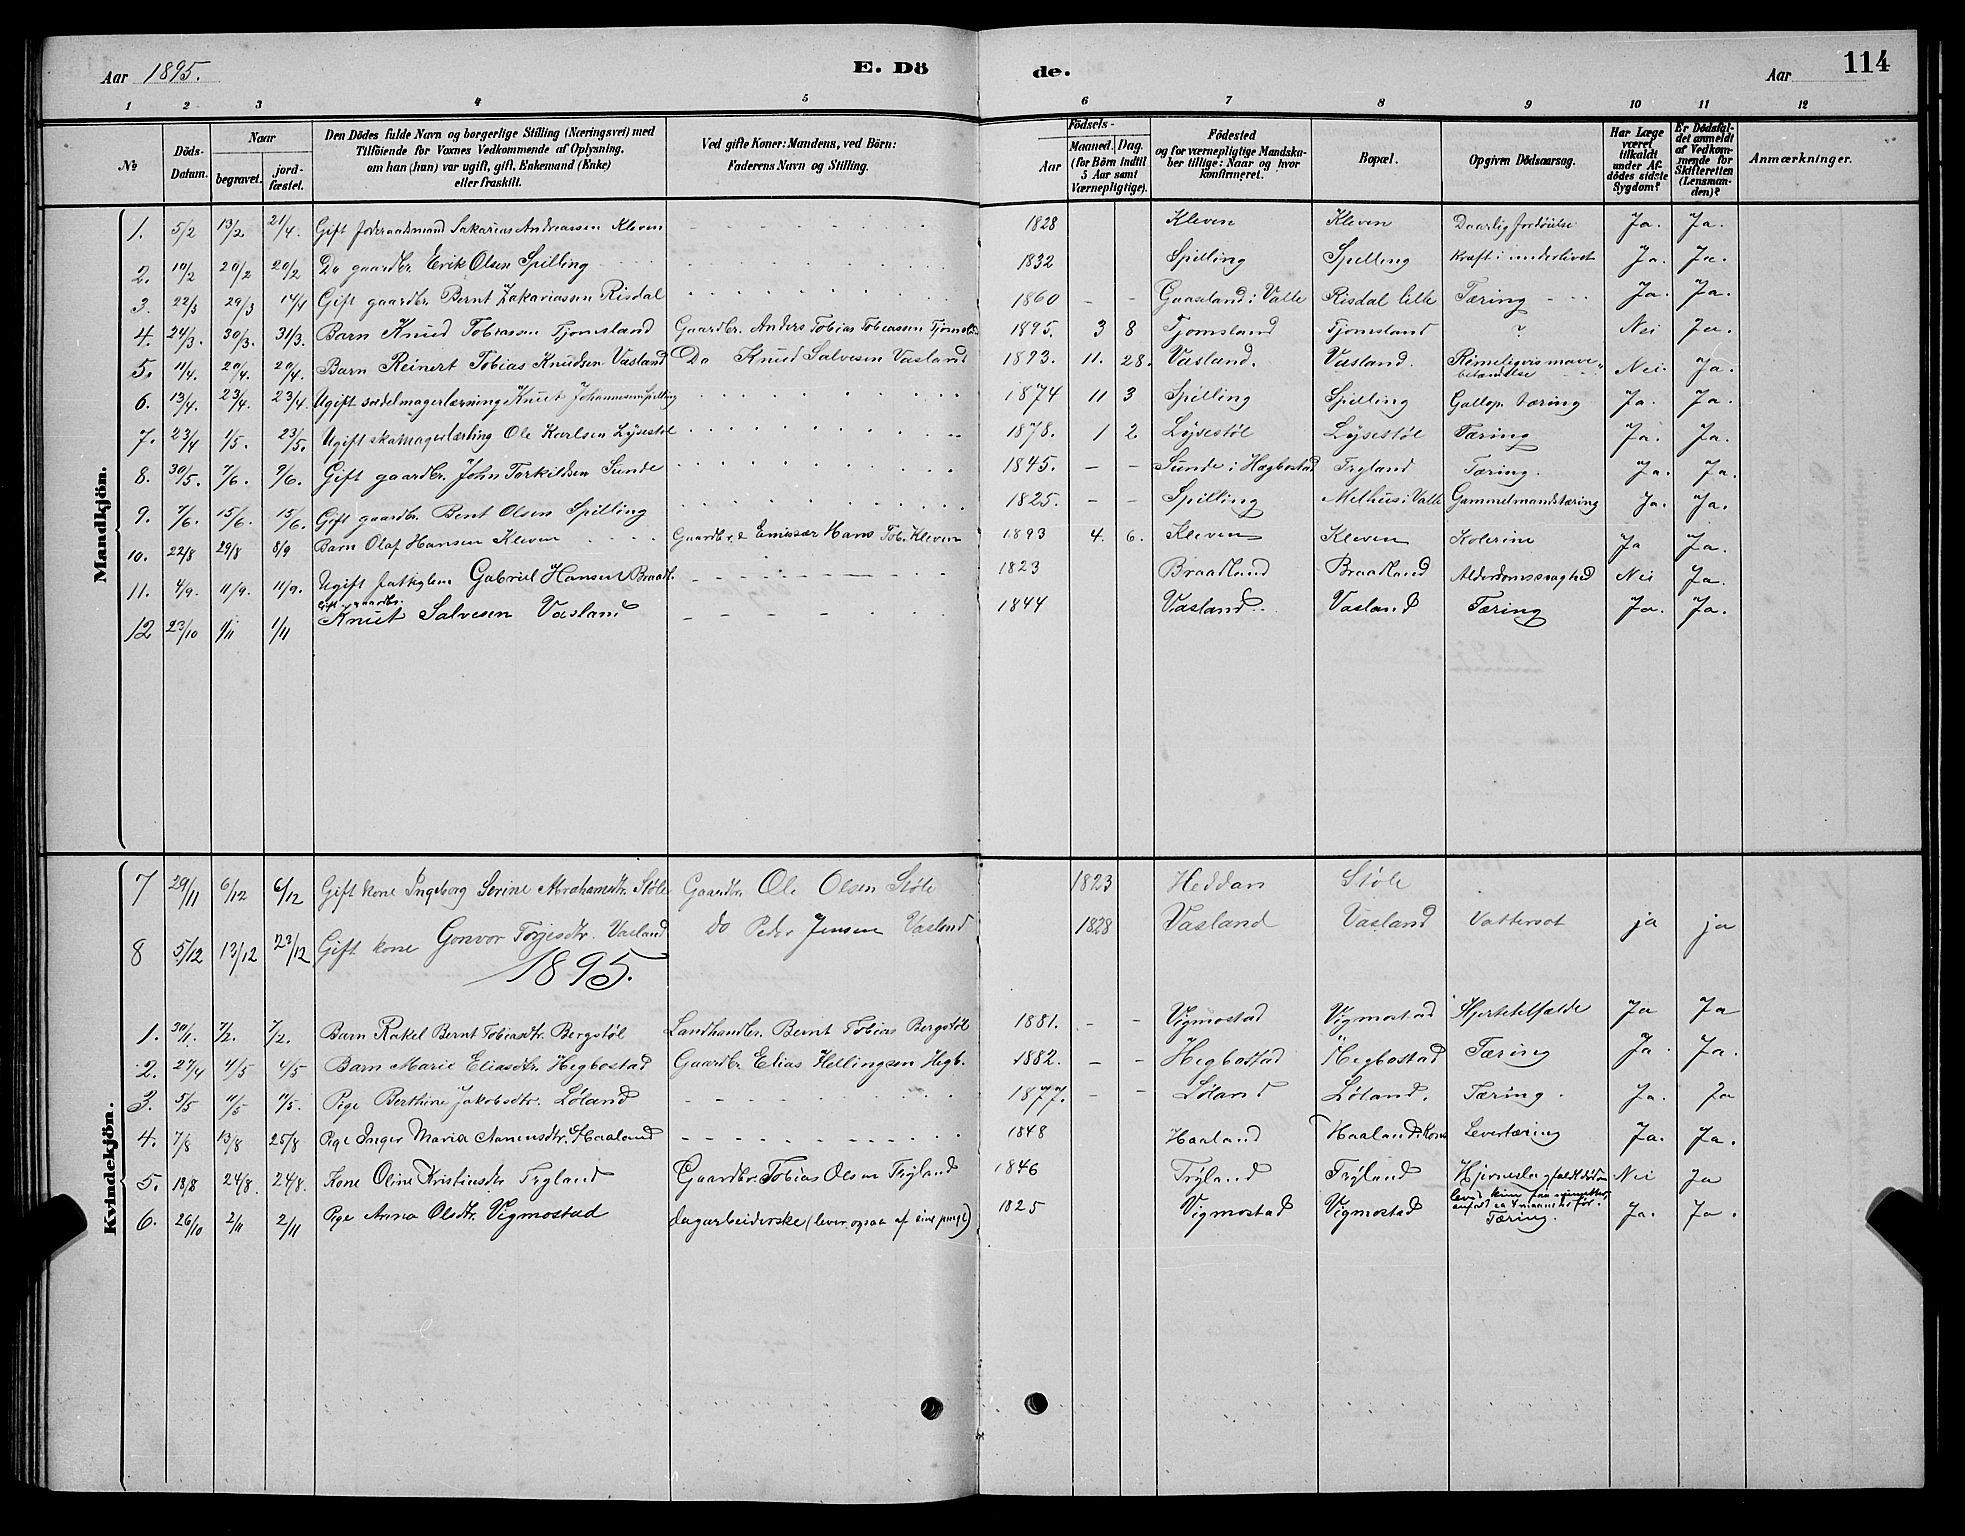 Aar 1895. E. Dö de. Aar 114
1 2 3 4 5 6 7 8 9 10 11 12
No
Döds-Datum.
Naar
begravet.
jord-fæstet.
Den Dödes fulde Navn og borgerlige Stilling (Næringsvei) med
Tilföiende for Voxnes Vedkommende af Oplysning,
om han (hun) var ugift, gift, Enkemand (Enke)
eller fraskilt.
Ved gifte Koner: Mandens, ved Börn:
Faderens Navn og Stilling.
Födsels-
Aar
Maaned. Dag.
(for Börn indtil
5 Aar samt
Værnepligtige).
Födested
og for værnepligtige Mandska-
ber tillige: Naar og hvor
konfirmeret.
Bopæl.
Opgiven Dödsaarsag.
Har Læge
været
tilkaldt
under Af-
dödes sidste
Sygdom?
Er Dödsfal-
det anmeldt
af Vedkom-
mende for
Skifteretten
(Lensman-
den)?
Anmærkninger.
Mandkjön.
1. 5/2 13/2 21/4. Gift foderaadsmand Sakarias Andreassen Kleven 1828 Kleven Kleven Daarlig fordöielse Ja. Ja.
2. 10/2 20/2 20/2 Do gaardbr. Erik Olsen Spilling 1832 Spilling Spilling Kræft i underlivet Ja. Ja.
3. 22/3 29/3 14/4 Gift gaardbr. Bernt Zakariassen Risdal 1860 - - Gaasland i Valle Risdal lille Tæring Ja. Ja.
4. 24/3. 30/3. 31/3. Barn Knud Tobiassen Tjomsland Gaardbr. Anders Tobias Tobiassen Tjomsl. 1895. 3 8 Tjomsland Tjomsland ? Nei Ja.
5. 11/4. 20/4. 20/4. Barn Reinert Tobias Knudsen Vasland Do Knud Salvesen Vasland 1893. 11. 28. Vasland. Vasland. Rimeligvis mave-betændelse Nei. Ja.
6. 13/4. 23/4. 23/4 Ugift sadelmagerlærning Knut Johannessen Spilling 1874 11 3 Spilling Spilling Gallop. tæring Ja. Ja.
7. 23/4 1/5. 23/5. Ugift skomagerlærling Ole Karlsen Lÿsestöl 1878. 1 2 Lÿsestöl Lÿsestöl Tæring Ja. Ja.
8. 30/5. 7/6. 7/6. Gift gaardbr. John Torkildsen Sunde 1845. - - Sunde i Hægbostad Tryland Tæring. Ja. Ja.
9. 7/6. 15/6. 15/6. Gift gaardbr. Bent Olsen Spilling 1825. - - Spilling Melhus i Valle Gammelmandstæring Ja. Ja.
10. 22/8 29/8 8/9 Barn Olaf Hansen Kleven Gaardbr. & Emissær Hans Tob. Kleven 1893 4. 6. Kleven Kleven Kolerine Ja Ja.
11. 4/9. 11/9. 11/9. Ugift fattiglem Gabriel Hansen Braadl. 1823 Braadland Braadland Alderdomssvaghed Nei Ja.
Gift gaardbr.
12 23/10 1/11 1/11 Knut Salvesen Vasland 1844 Vasland. Vasland Tæring Ja. Ja.
Kvindekjön.
7 29/11 6/12 6/12 Gift kone Ingeborg Serine Abrahamsdtr. Støle Gaardbr. Ole Olsen Støle 1823 Heddan Støle
8 5/12 13/12 23/12 Gift kone Gonvor Torjesdtr. Vasland do Peder Jensen Vasland 1828 Vasland Vasland Vattersot ja ja
1895.
1. 30/1. 7/2. 7/2. Barn Rakel Bernt Tobiasdtr. Bergstöl Landhandler. Bernt Tobias Bergstöl 1881. - - Vigmostad Vigmostad Hjertefeil Ja Ja
2. 27/4 4/5 4/5 Barn Marie Eliasdtr. Hegbostad Gaardbr. Elias Hellingsen Hegb. 1882. - - Hegbostad Hegbostad Tæring Ja Ja.
3. 5/5 11/5 11/5. Pige Berthine Jakobsdtr. Løland 1877. - - Løland Løland. Tæring. Ja. Ja
4. 7/8 13/8 25/8 Pige Inger Maria Aanensdtr. Haaland 1848 Haaland Haaland i Kons Levertæring Ja. Ja.
5. 18/8 24/8. 24/8. Kone Oline Kristiansdtr Trÿland Gaardbr. Tobias Olsen Trÿland 1846 Trÿland Trÿland Nei Ja
6. 26/10 2/11 2/11 Pige Anna Olsdtr. Vigmostad dagarbeiderske (lever ogsaa af sine penge) 1825 Vigmostad Vigmostad Tæring. Ja. Ja.